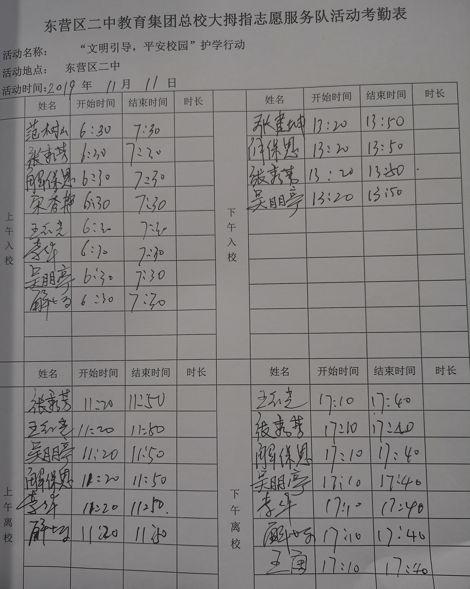 东营区二中教育集团总校大拇指志愿服务队活动考勤表
活动名称： “文明引导，平安校园”护学行动
活动地点： 东营区二中
活动时间:2019 年 11 月 11 日
姓名 开始时间 结束时间 时长 姓名 开始时间 结束时间 时长
上午入校
6:30 7:30
张秀芳 6:30 7:30
解保恩 6:30 7:30
宋香静 6:30 7:30
王志光 6:30 7:30
李华 6:30 7:30
吴明亭 6:30 7:30
6:30 7:30
下午入校
13:20 13:50
解保恩 13:20 13:50
张秀芳 13:20 13:50
吴明亭 13:20 13:50
姓名 开始时间 结束时间 时长 姓名 开始时间 结束时间 时长
上午离校
张秀芳 11:20 11:50
王志光 11:20 11:50
吴明亭 11:20 11:50
解保恩 11:20 11:50
李华 11:20 11:50
11:20 11:50
下午离校
王志光 17:10 17:40
张秀芳 17:10 17:40
解保恩 17:10 17:40
吴明亭 17:10 17:40
李华 17:10 17:40
17:10 17:40
17:10 17:40